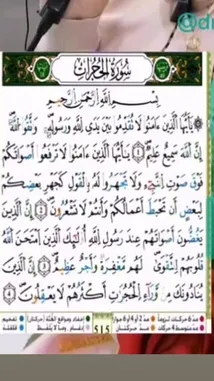 سُورَةُ الْحُجُرَاتِ
بِسْمِ اللَّهِ الرَّحْمَٰنِ الرَّحِيمِ
يَا أَيُّهَا الَّذِينَ آمَنُوا لَا تُقَدِّمُوا بَيْنَ يَدَيِ اللَّهِ وَرَسُولِهِ ۖ وَاتَّقُوا اللَّهَ ۚ
إِنَّ اللَّهَ سَمِيعٌ عَلِيمٌ ١ يَا أَيُّهَا الَّذِينَ آمَنُوا لَا تَرْفَعُوا أَصْوَاتَكُمْ
فَوْقَ صَوْتِ النَّبِيِّ وَلَا تَجْهَرُوا لَهُ بِالْقَوْلِ كَجَهْرِ بَعْضِكُمْ
لِبَعْضٍ أَنْ تَحْبَطَ أَعْمَالُكُمْ وَأَنْتُمْ لَا تَشْعُرُونَ ٢ إِنَّ الَّذِينَ
يَغُضُّونَ أَصْوَاتَهُمْ عِنْدَ رَسُولِ اللَّهِ أُولَٰئِكَ الَّذِينَ امْتَحَنَ اللَّهُ
قُلُوبَهُمْ لِلتَّقْوَىٰ ۚ لَهُمْ مَغْفِرَةٌ وَأَجْرٌ عَظِيمٌ ٣ إِنَّ الَّذِينَ
يُنَادُونَكَ مِنْ وَرَاءِ الْحُجُرَاتِ أَكْثَرُهُمْ لَا يَعْقِلُونَ ٤
515